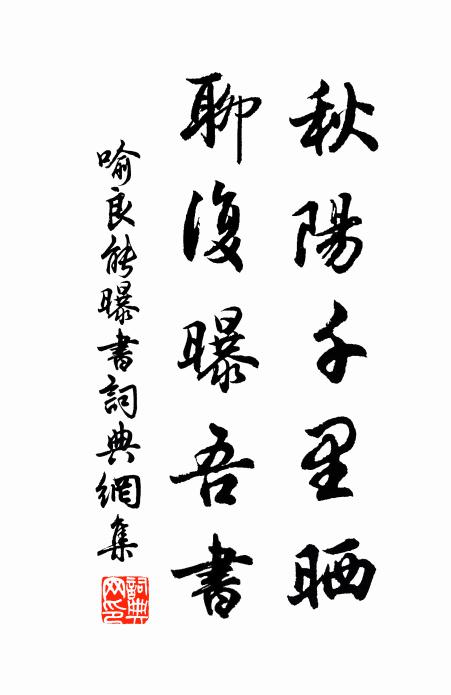 秋陽千里晒
聊復曝吾書
喻良能曝書詞典網集
詞典网印